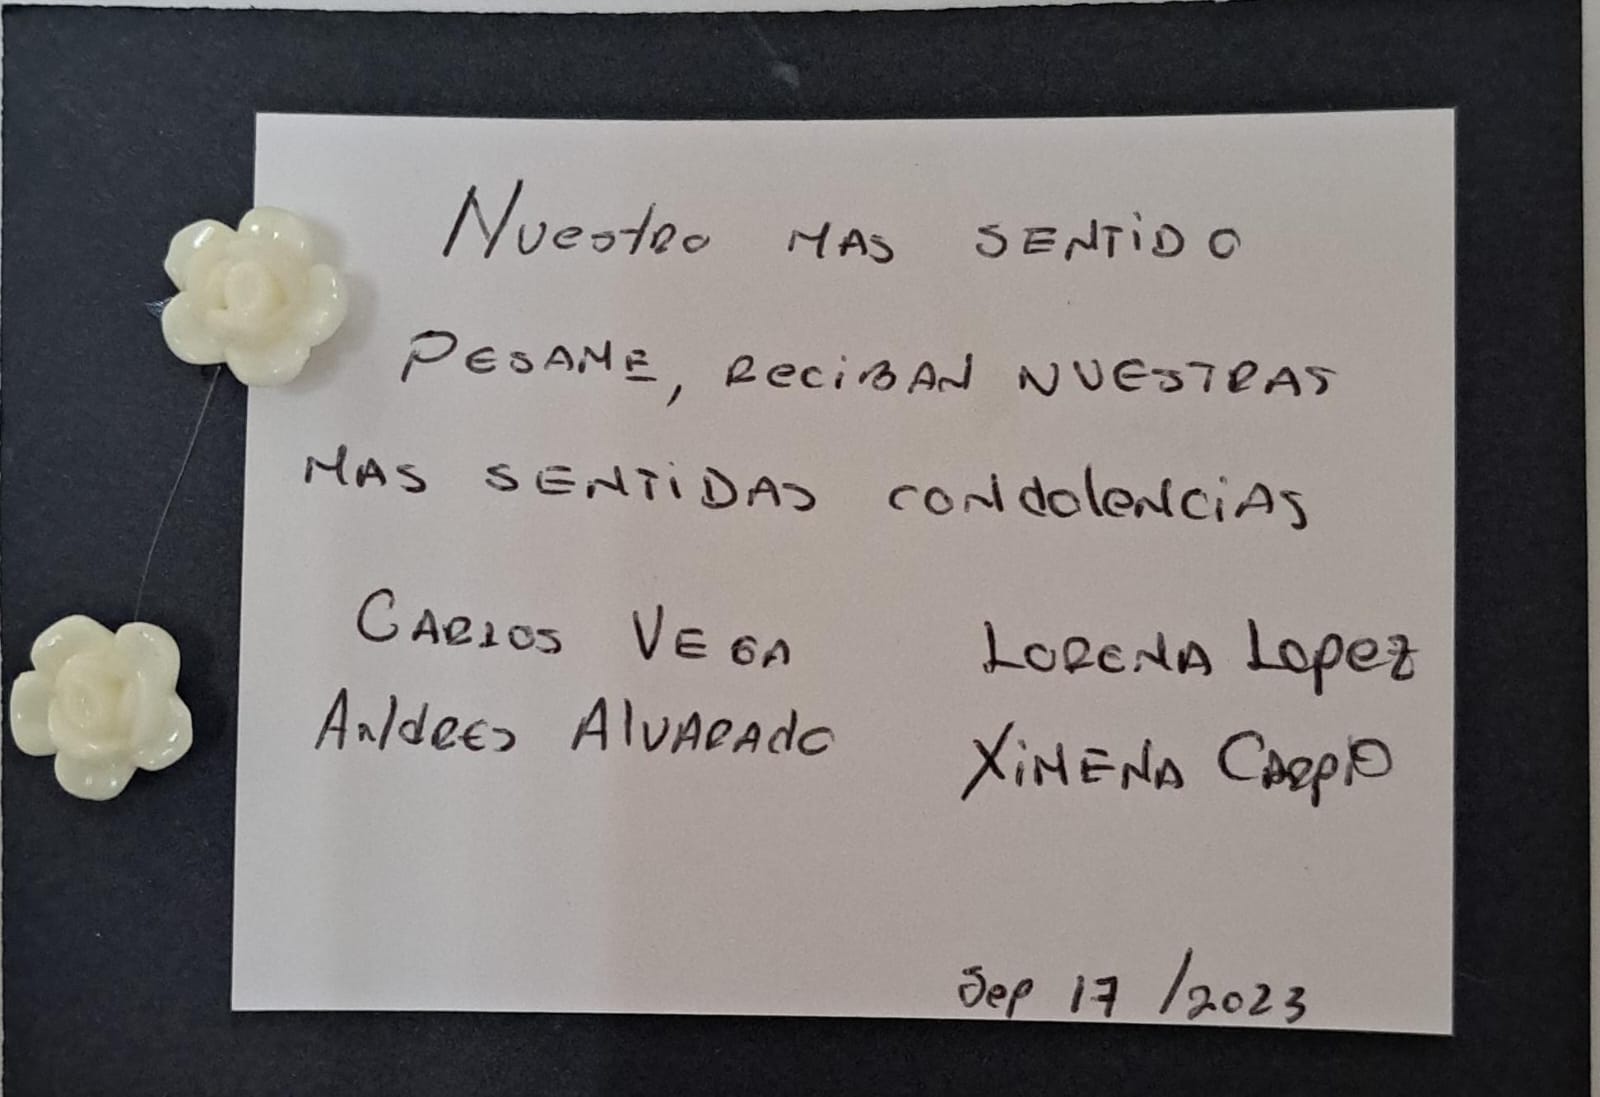 Nuestro MAS SENTIDO
PESAME, RECIBAN NUESTRAS
MAS SENTIDAS CONdolENCIAS
CARLOS VEGA
LORENA Lopez
ANdRES AlVARAdo
XIMENA CARPIO
Sep 17 /2023